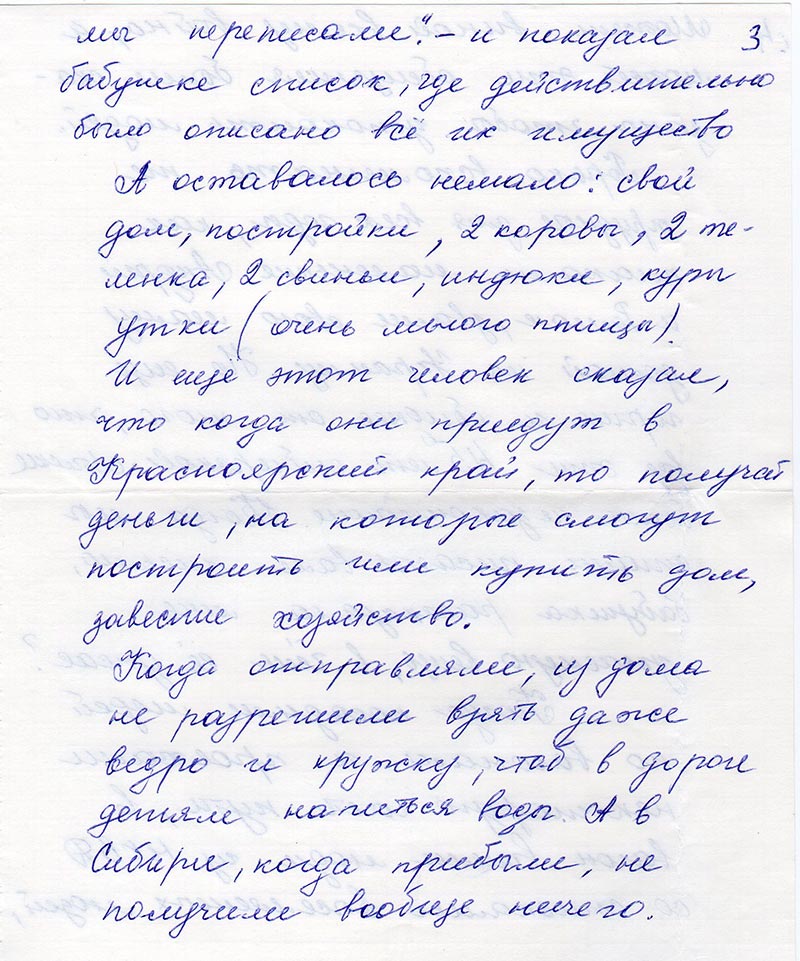 мы переписали". – и показал 3
бабушке список, где действительно
было описано всё их имущество
А оставалось немало: свой
дом, постройки, 2 коровы, 2 те-
ленка, 2 свиньи, индюки, куры
утки (очень много птицы).
И ещё этот человек сказал,
что когда они приедут в
Красноярский край, то получат
деньги, на которые смогут
построить или купить дом,
завести хозяйство.
Когда отправляли, из дома
не разрешили взять даже
ведро и кружку, чтоб в дороге
детям напиться воды. А в
Сибири, когда прибыли, не
получили вообще ничего.